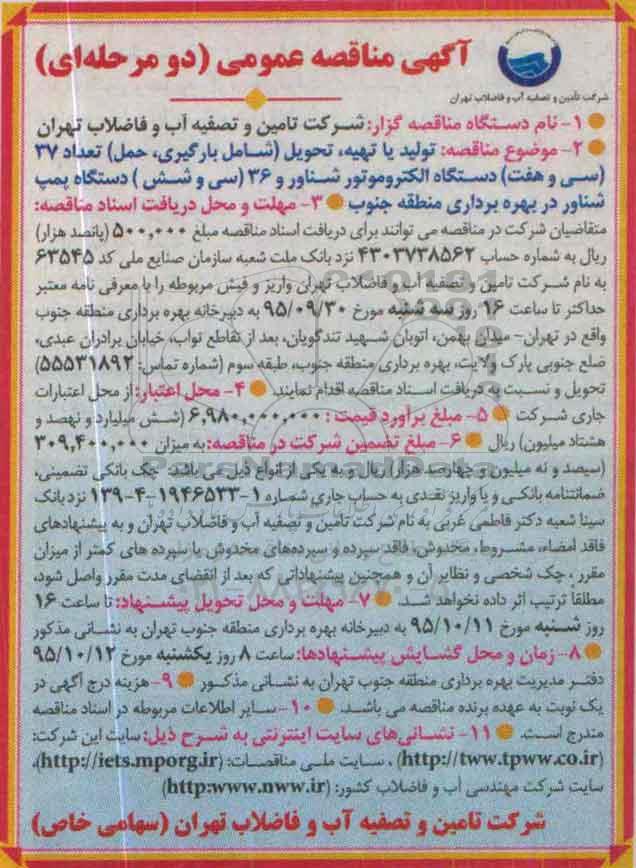 آگهی مناقصه عمومی (دو مرحله‌ای)
شرکت تأمین و تصفیه آب و فاضلاب تهران
۱- نام دستگاه مناقصه گزار: شرکت تامین و تصفیه آب و فاضلاب تهران
۲- موضوع مناقصه: تولید یا تهیه، تحویل (شامل بارگیری، حمل) تعداد ۳۷
(سی و هفت) دستگاه الکتروموتور شناور و ۳۶ (سی و شش) دستگاه پمپ
شناور در بهره برداری منطقه جنوب ۳- مهلت و محل دریافت اسناد مناقصه:
متقاضیان شرکت در مناقصه می توانند برای دریافت اسناد مناقصه مبلغ ۵۰۰,۰۰۰ (پانصد هزار)
ریال به شماره حساب ۴۳۰۳۷۳۸۵۶۲ نزد بانک ملت شعبه سازمان صنایع ملی کد ۶۳۵۴۵
به نام شرکت تامین و تصفیه آب و فاضلاب تهران واریز و فیش مربوطه را با معرفی نامه معتبر
حداکثر تا ساعت ۱۶ روز سه شنبه مورخ ۹۵/۰۹/۳۰ به دبیرخانه بهره برداری منطقه جنوب
واقع در تهران- میدان بهمن، اتوبان شهید تندگویان، بعد از تقاطع نواب، خیابان برادران عبدی،
ضلع جنوبی پارک ولایت، بهره برداری منطقه جنوب، طبقه سوم (شماره تماس: ۵۵۵۳۱۸۹۲)
تحویل و نسبت به دریافت اسناد مناقصه اقدام نمایند. ۴- محل اعتبار: از محل اعتبارات
جاری شرکت ۵- مبلغ برآورد قیمت: ۶,۹۸۰,۰۰۰,۰۰۰ (شش میلیارد و نهصد و
هشتاد میلیون) ریال ۶- مبلغ تضمین شرکت در مناقصه: به میزان ۳۰۹,۴۰۰,۰۰۰
(سیصد و نه میلیون و چهارصد هزار) ریال و به یکی از انواع ذیل می باشد: چک بانکی تضمینی،
ضمانتنامه بانکی و یا واریز نقدی به حساب جاری شماره ۱-۱۹۴۶۵۳۳-۴-۱۳۹ نزد بانک
سینا شعبه دکتر فاطمی غربی به نام شرکت تامین و تصفیه آب و فاضلاب تهران و به پیشنهادهای
فاقد امضاء، مشروط، مخدوش، فاقد سپرده و سپرده‌های مخدوش یا سپرده های کمتر از میزان
مقرر، چک شخصی و نظایر آن و همچنین پیشنهاداتی که بعد از انقضای مدت مقرر واصل شود،
مطلقا ترتیب اثر داده نخواهد شد. ۷- مهلت و محل تحویل پیشنهاد: تا ساعت ۱۶
روز شنبه مورخ ۹۵/۱۰/۱۱ به دبیرخانه بهره برداری منطقه جنوب تهران به نشانی مذکور
۸- زمان و محل گشایش پیشنهادها: ساعت ۸ روز یکشنبه مورخ ۹۵/۱۰/۱۲
دفتر مدیریت بهره برداری منطقه جنوب تهران به نشانی مذکور ۹- هزینه درج آگهی در
یک نوبت به عهده برنده مناقصه می باشد. ۱۰- سایر اطلاعات مربوطه در اسناد مناقصه
مندرج است. ۱۱- نشانی‌های سایت اینترنتی به شرح ذیل: سایت این شرکت:
(http://tww.tpww.co.ir) ، سایت ملی مناقصات: (http://iets.mporg.ir)،
سایت شرکت مهندسی آب و فاضلاب کشور: (http:www.nww.ir)
شرکت تامین و تصفیه آب و فاضلاب تهران (سهامی خاص)